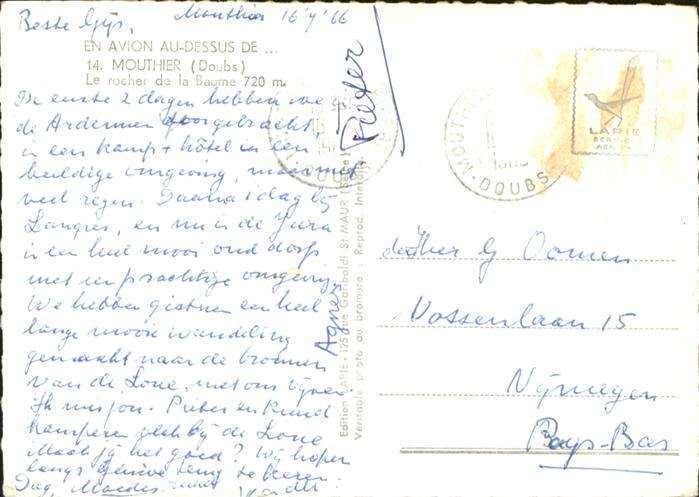 Mouthier 16/7/'66
Beste Gijs,
EN AVION AU-DESSUS DE ...
14. MOUTHIER (Doubs)
Le rocher de la Baume 720 m.
De eerste 2 dagen hebben we
de Ardennen doorgebracht,
in een kamp + hôtel in een
heuldige omgeving, maar
veel regen. Daarna 1 dag bij
Langres, en nu in de Jura
in een heel mooi oud dorp
met een prachtige omgeving.
We hebben gisteren een heel
lange mooie wandeling
gemaakt naar de bronnen
van de Loue, met ons vijven.
Ik mis jou. Pieter en Ruud
kamperen vlak bij de Loue
Maak jij het goed? Wij hopen
langs Genève terug te keren.
Dag, Moeder
Pieter
Agnes
Edition LAPIE - 125 rue Garibaldi St MAUR (Seine)
Véritable photo au bromure - Reprod. Interdite
MOUTHIER
DOUBS
LAPIE
SERVICE
AERIEN
den Heer G Oomen
Vossenlaan 15
Nijmegen
Pays-Bas